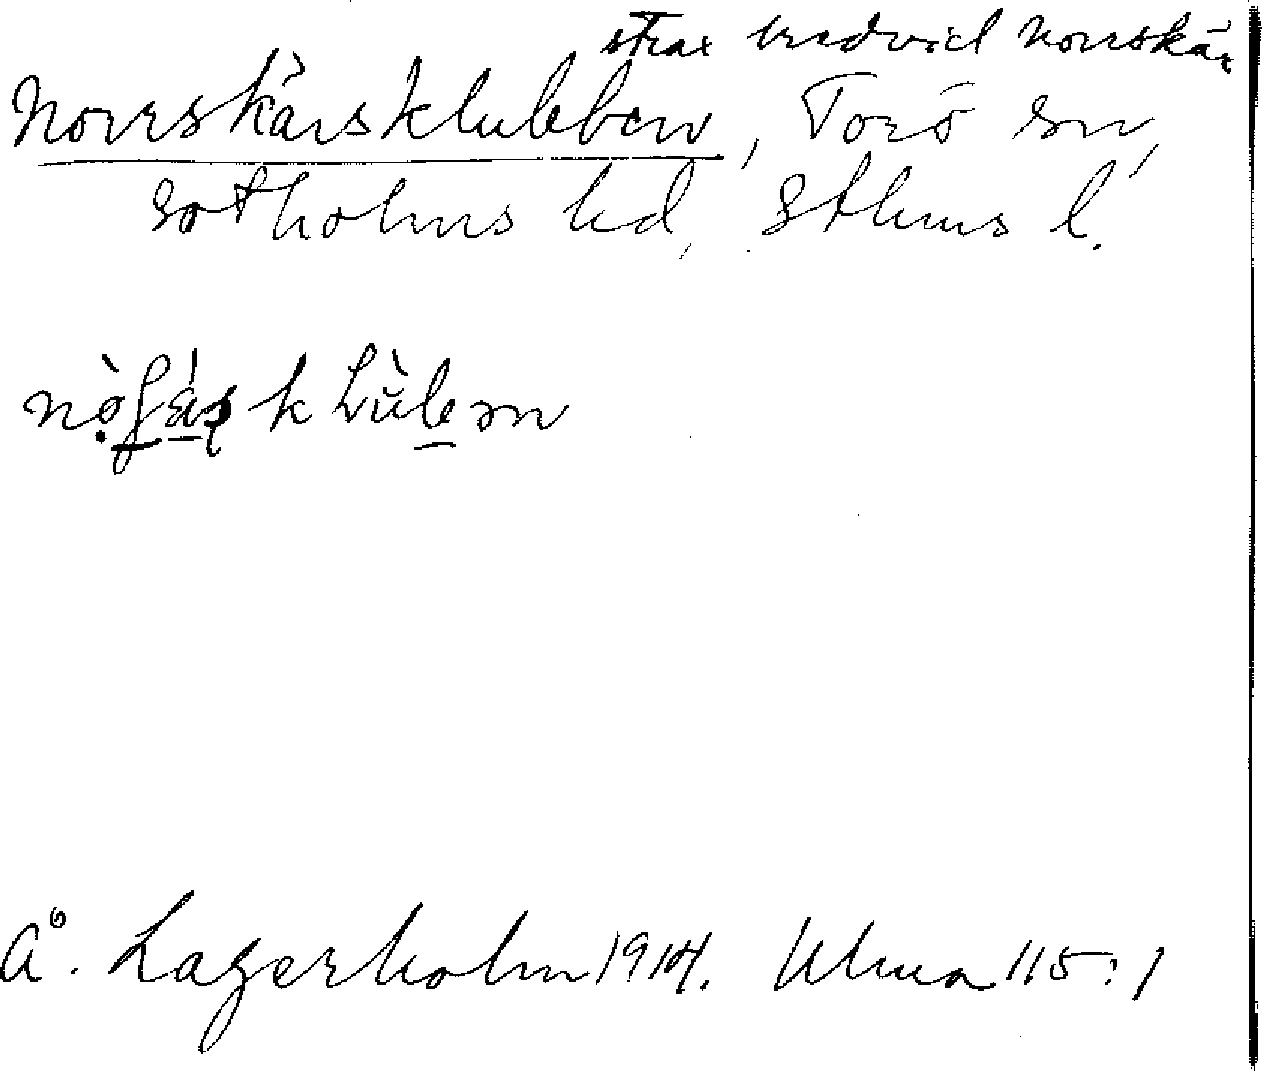 strax bredvid Norrskär
Norrskärsklubben, Torö sn,
Sotholms hd, Sthms l.
Å. Lagerholm 1914. Ulma 115:1